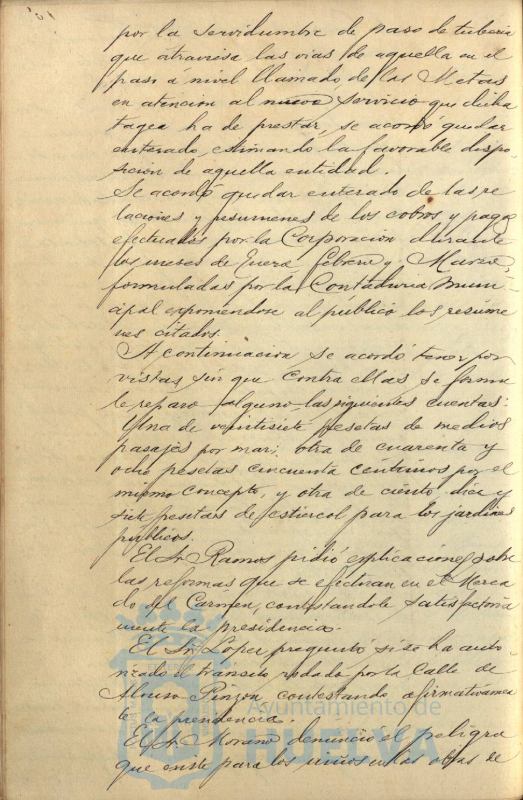 por la servidumbre de paso de tuberia
que atraviesa las vias de aquella en el
paso á nivel llamado de las Metas
en atencion al nuevo servicio que dicha
ha de prestar, se acordó quedar
enterado, estimando la favorable dispo-
sicion de aquella entidad.
Se acordó quedar enterado de las re
laciones y resumenes de los cobros y pagos
efectuados por la Corporacion durante
los meses de Enero Febrero y Marzo,
formuladas por la Contaduria Muni-
cipal exponiendose al público los resúme
nes citados.
A continuacion se acordó tener por
vistas sin que contra ellas se formu
le reparo alguno las siguientes cuentas:
Una de veintisiete pesetas de medios
pasajes por mar; otra de cuarenta y
ocho pesetas cincuenta centimos por el
mismo concepto, y otra de ciento diez y
siete pesetas de estiercol para los jardines
públicos.
El Sr Ramos pidió explicaciones sobre
las reformas que se efectuan en el Merca
do del Carmen, contestandole satisfactoria
mente la presidencia.
El Sr López preguntó si se ha auto-
rizado el transito rodado por la Calle de
Alonso Pinzon contestando afirmativamen
te la presidencia.
El Sr Morano denunció el peligro
que existe para los niños en las obras de
Ayuntamiento de
HUELVA